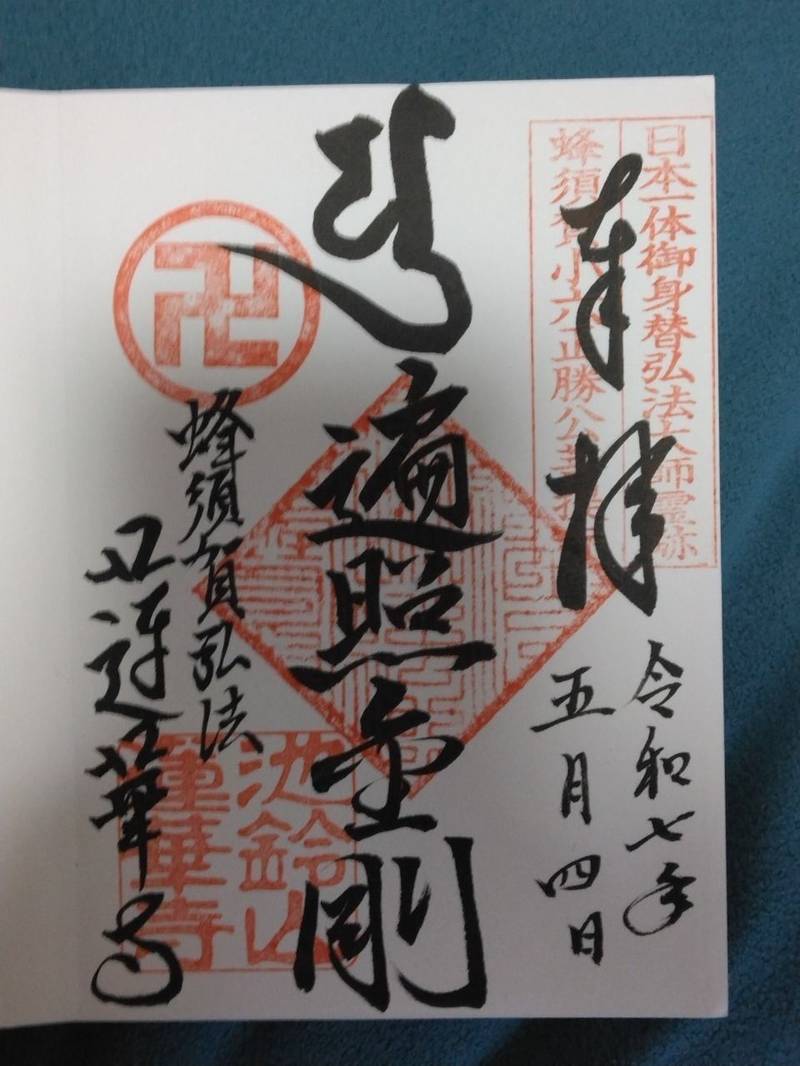 日本一体御身替弘法大師靈跡
蜂須賀小六正勝公菩提
奉拝
令和七年
五月四日
遍照金剛
卍
蜂須賀弘法
蓮華寺
池鈴山
蓮華寺